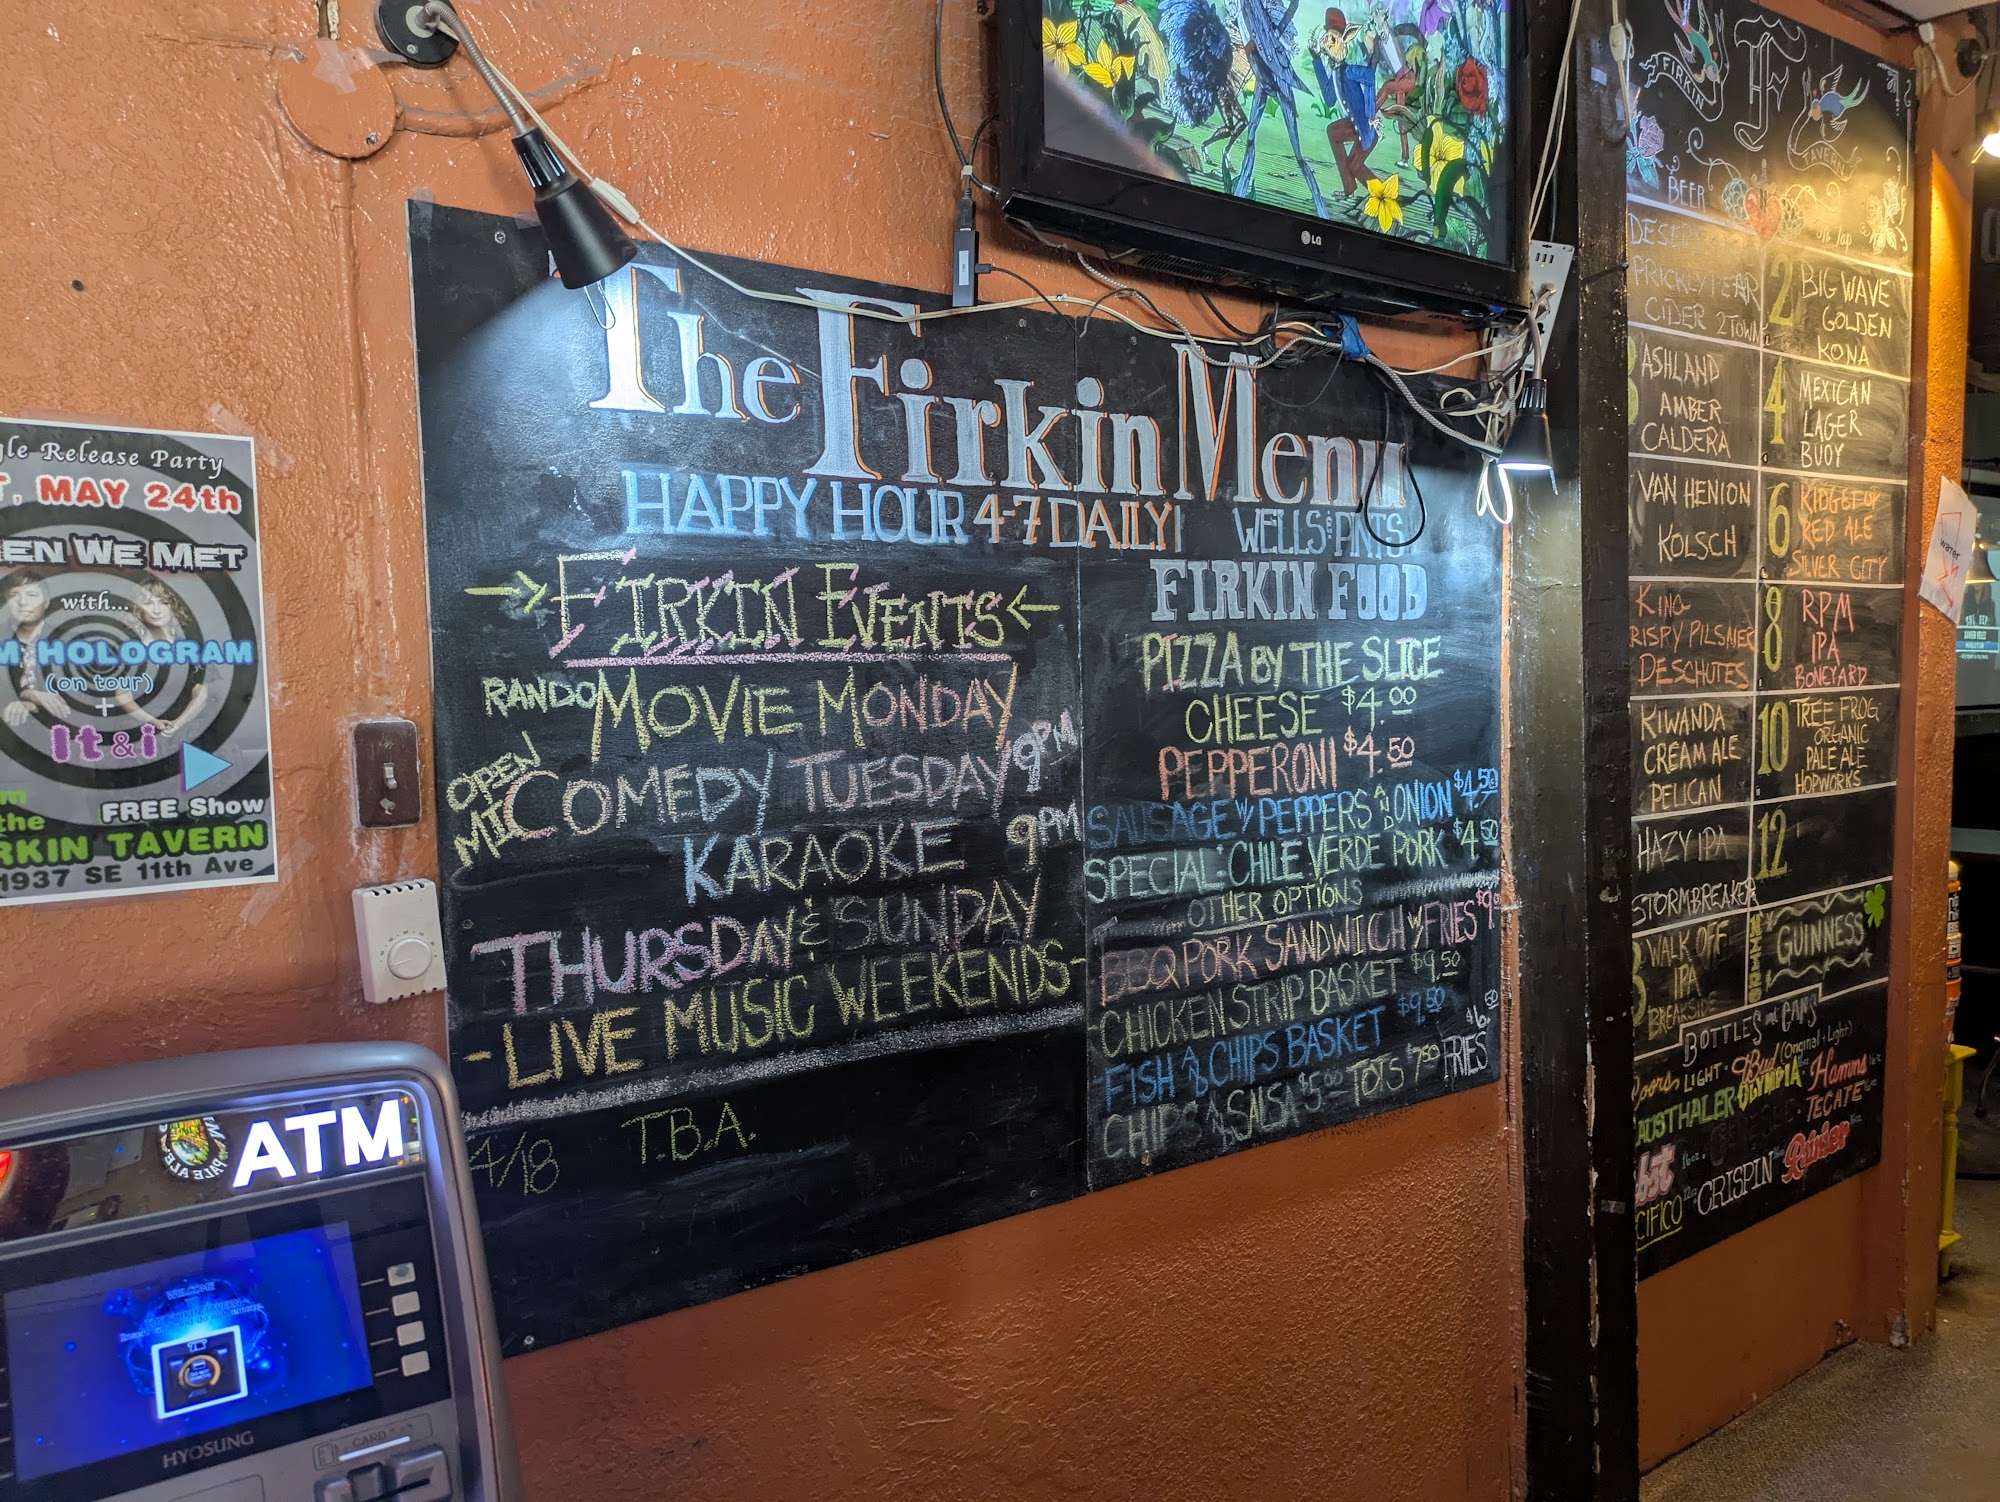 gle Release Party
MAY 24th
EN WE MET
with...
M HOLOGRAM
(on tour)
+
It & i
FREE Show
the
RKIN TAVERN
1937 SE 11th Ave
ATM
PALE ALE
WELCOME
HYOSUNG
CARD
LG
The Firkin Menu
HAPPY HOUR 4-7 DAILY!
WELLS & PINTS
→ FIRKIN EVENTS ←
RANDO MOVIE MONDAY
OPEN MIC COMEDY TUESDAY 9PM
KARAOKE 9PM
THURSDAY & SUNDAY
- LIVE MUSIC WEEKENDS -
4/18 T.B.A.
FIRKIN FOOD
PIZZA BY THE SLICE
CHEESE $4.00
PEPPERONI $4.50
SAUSAGE W/ PEPPERS AND ONION $4.50
SPECIAL: CHILE VERDE PORK $4.50
... OTHER OPTIONS
BBQ PORK SANDWICH W/ FRIES $9.
- CHICKEN STRIP BASKET $9.50
- FISH AND CHIPS BASKET $9.50
CHIPS AND SALSA $5.00 TOTS $7.50 FRIES $6.50
FIRKIN
F
TAVERN
BEER
on Tap
DESERT
PRICKLY PEAR
CIDER 2 TOWN
2
BIG WAVE
GOLDEN
KONA
ASHLAND
AMBER
CALDERA
4
MEXICAN
LAGER
BUOY
VAN HENION
KOLSCH
6
RIDGETOP
RED ALE
SILVER CITY
KING
RISPY PILSNER
DESCHUTES
8
RPM
IPA
BONEYARD
KIWANDA
CREAM ALE
PELICAN
10
TREE FROG
ORGANIC
PALE ALE
HOPWORKS
HAZY IPA
STORMBREAKER
12
WALK OFF
IPA
BREAKSIDE
GUINNESS
BOTTLES and CANS
Coors LIGHT · Bud (Original + Light)
AUSTHALER · OLYMPIA · Hamms 16oz
TECATE
bst 16oz
CRISPIN
Rainier
CIFICO 12oz
water